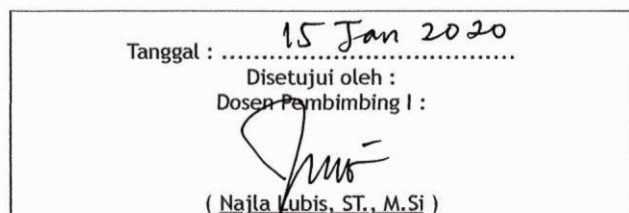 Tanggal : 15 Jan 2020
Disetujui oleh :
Dosen Pembimbing I :
( Najla Lubis, ST., M.Si )